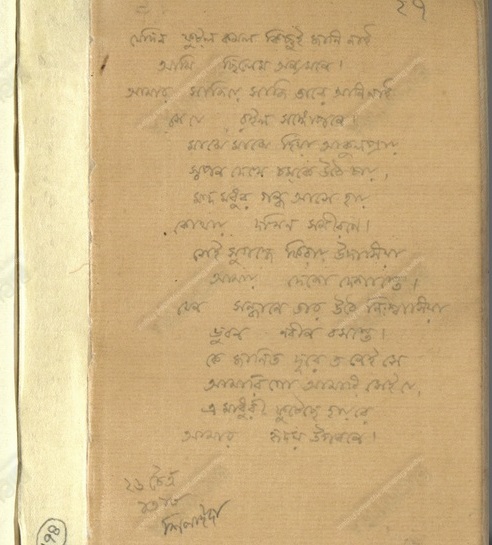 ২৭
যেদিন ফুটল কমল কিছুই জানি নাই
আমি ছিলেম অন্যমনে।
আমার সাজিয়ে সাজি তারে আনি নাই
সে যে রইল সঙ্গোপনে।
মাঝে মাঝে হিয়া আকুলপ্রায়
স্বপন দেখে চমকে উঠে চায়,
মন্দ মধুর গন্ধ আসে হায়
কোথায় দখিন সমীরণে।
সেই সুগন্ধে ফিরায় উদাসিয়া
আমায় দেশে দেশান্তে।
যেন সন্ধানে তার উঠে নিঃশ্বাসিয়া
ভুবন নবীন বসন্তে।
কে জানিত দূরে ত নেই সে
আমারি গো আমারি সেই যে,
এ মাধুরী ফুটেছে হায় রে
আমার হৃদয় উপবনে।
২৬ চৈত্র
শিলাইদা